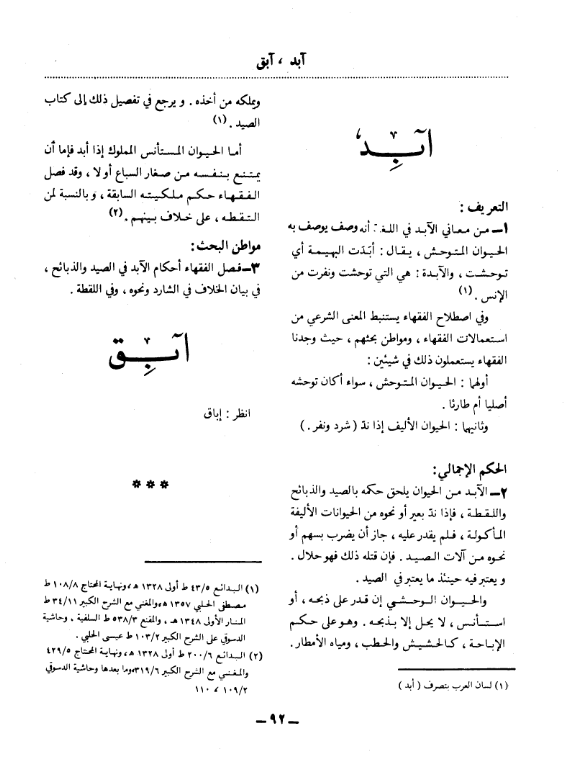 آبد ، آبق
آبِد
التعريف :
١ـ من معاني الآبد في اللغة : أنه وصف يوصف به
الحيوان المتوحش ، يقال : أبَدَت البهيمة أي
توحشت ، والآبدة : هي التي توحشت ونفرت من
الإنس . (١)
وفي اصطلاح الفقهاء يستنبط المعنى الشرعي من
استعمالات الفقهاء ، ومواطن بحثهم ، حيث وجدنا
الفقهاء يستعملون ذلك في شيئين :
أولهما : الحيوان المتوحش ، سواء أكان توحشه
أصليا أم طارئا .
وثانيهما : الحيوان الأليف إذا ندّ ( شرد ونفر . )
الحكم الإجمالي :
٢ـ الآبد من الحيوان يلحق حكمه بالصيد والذبائح
واللقطة ، فإذا ندّ بعير أو نحوه من الحيوانات الأليفة
المأكولة ، فلم يقدر عليه ، جاز أن يضرب بسهم أو
نحوه من آلات الصيد . فإن قتله ذلك فهو حلال .
ويعتبر فيه حينئذ ما يعتبر في الصيد .
والحيوان الوحشي إن قدر على ذبحه ، أو
استأنس ، لا يحل إلا بذبحه . وهو على حكم
الإباحة ، كالحشيش والحطب ، ومياه الأمطار .
(١) لسان العرب بتصرف ( أبد )
ويملكه من أخذه . و يرجع في تفصيل ذلك إلى كتاب
الصيد . (١)
أما الحيوان المستأنس المملوك إذا أبد فإما أن
يمتنع بنفسه من صغار السباع أو لا ، وقد فصل
الفقهاء حكم ملكيته السابقة ، وبالنسبة لمن
التقطه ، على خلاف بينهم . (٢)
مواطن البحث :
٣ـ فصل الفقهاء أحكام الآبد في الصيد والذبائح ،
في بيان الخلاف في الشارد ونحوه ، وفي اللقطة .
آبِق
انظر : إباق
***
(١) البدائع ٤٣/٥ ط أولى ١٣٢٨ هـ ونهاية المحتاج ١٠٨/٨ ط
مصطفى الحلبي ١٣٥٧ هـ والمغني مع الشرح الكبير ٣٤/١١ ط
المنار الأولى ١٣٤٨ هـ ، والمقنع ٥٣٨/٣ ط السلفية ، وحاشية
الدسوقي على الشرح الكبير ١٠٣/٢ ط عيسى الحلبي .
(٢) البدائع ٢٠٠/٦ ط أولى ١٣٢٨ هـ ونهاية المحتاج ٤٢٩/٥
والمغني مع الشرح الكبير ٣١٩/٦ وما بعدها وحاشية الدسوقي
١٠٩/٢ ، ١١٠
ـ ٩٢ ـ